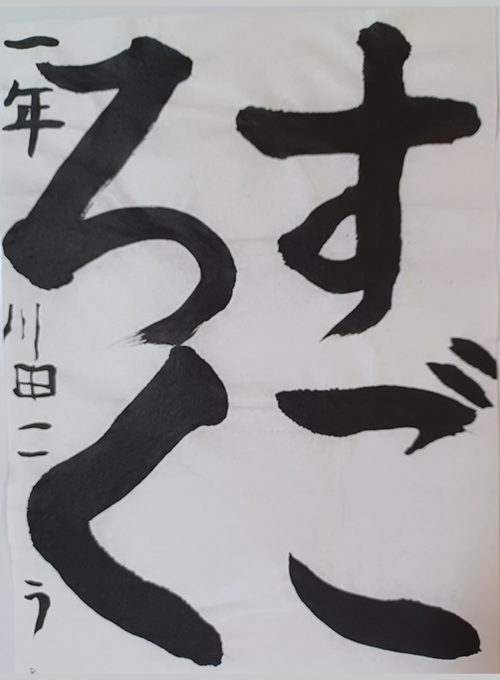 すご
ろく
一年 川田こう